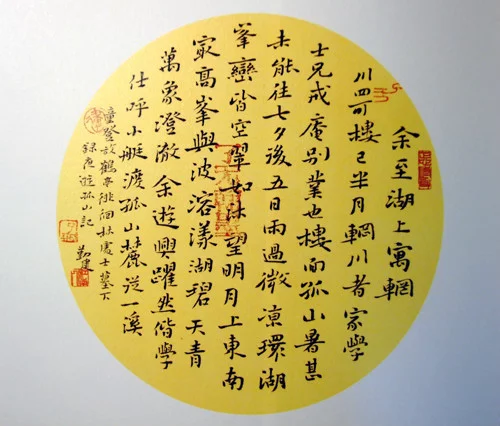 余至湖上寓輞
川四可樓已半月輞川者家學
士兄戒庵別業也樓面孤山暑甚
未能往七夕後五日雨過微凜環湖
峯巒皆空翠如沐望明月上東南
冣高峯與波溶漾湖碧天青
萬象澄澈余遊興躍然偕學
仕呼小艇渡孤山麓從一溪
童登放鶴亭徘徊林處士墓下
錄夜遊孤山記